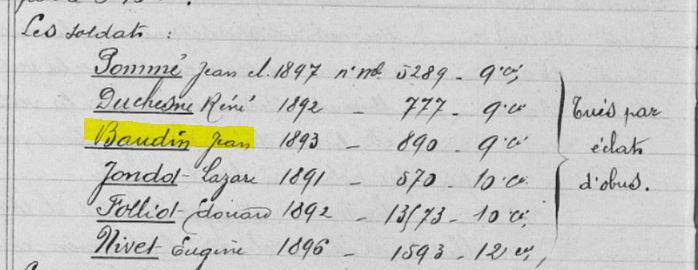 Les soldats :
Pommé Jean cl. 1897 n° ml 5289 - 9e cie
Duchesne Réné 1892 - 777 - 9e cie
Baudin Jean 1893 - 890 - 9e cie
Jondot Lazare 1891 - 570 - 10e cie
Folliot Edouard 1892 - 13573 - 10e cie
Nivet Eugène 1896 - 1593 - 12e cie
Tués par
éclats
d'obus.